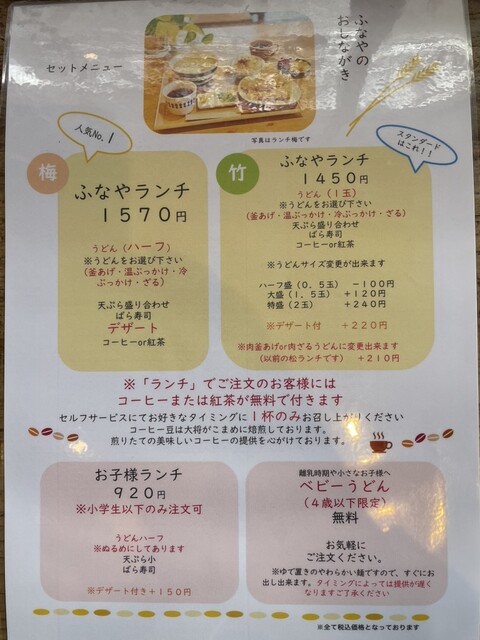 ふなやの
おしながき
セットメニュー
写真はランチ梅です
人気No.1
梅
ふなやランチ
1570円
うどん（ハーフ）
※うどんをお選び下さい
（釜あげ・温ぶっかけ・冷
ぶっかけ・ざる）
天ぷら盛り合わせ
ばら寿司
デザート
コーヒーor紅茶
スタンダード
はこれ！！
竹
ふなやランチ
1450円
うどん（1玉）
※うどんをお選び下さい
（釜あげ・温ぶっかけ・冷ぶっかけ・ざる）
天ぷら盛り合わせ
ばら寿司
コーヒーor紅茶
※うどんサイズ変更が出来ます
ハーフ盛（0.5玉） －100円
大盛（1.5玉） ＋120円
特盛（2玉） ＋240円
※デザート付 ＋220円
※肉釜あげor肉ざるうどんに変更出来ます
（以前の松ランチです） ＋210円
※「ランチ」でご注文のお客様には
コーヒーまたは紅茶が無料で付きます
セルフサービスにてお好きなタイミングに1杯のみお召し上がりください
コーヒー豆は大将がこまめに焙煎しております。
煎りたての美味しいコーヒーの提供を心がけております。
お子様ランチ
920円
※小学生以下のみ注文可
うどんハーフ
※ぬるめにしてあります
天ぷら小
ばら寿司
※デザート付き＋150円
離乳時期や小さなお子様へ
ベビーうどん
（4歳以下限定）
無料
お気軽に
ご注文ください。
※ゆで置きのやわらかい麺ですので、すぐにお
出し出来ます。タイミングによっては提供が遅く
なりますご了承ください
※全て税込価格となっております